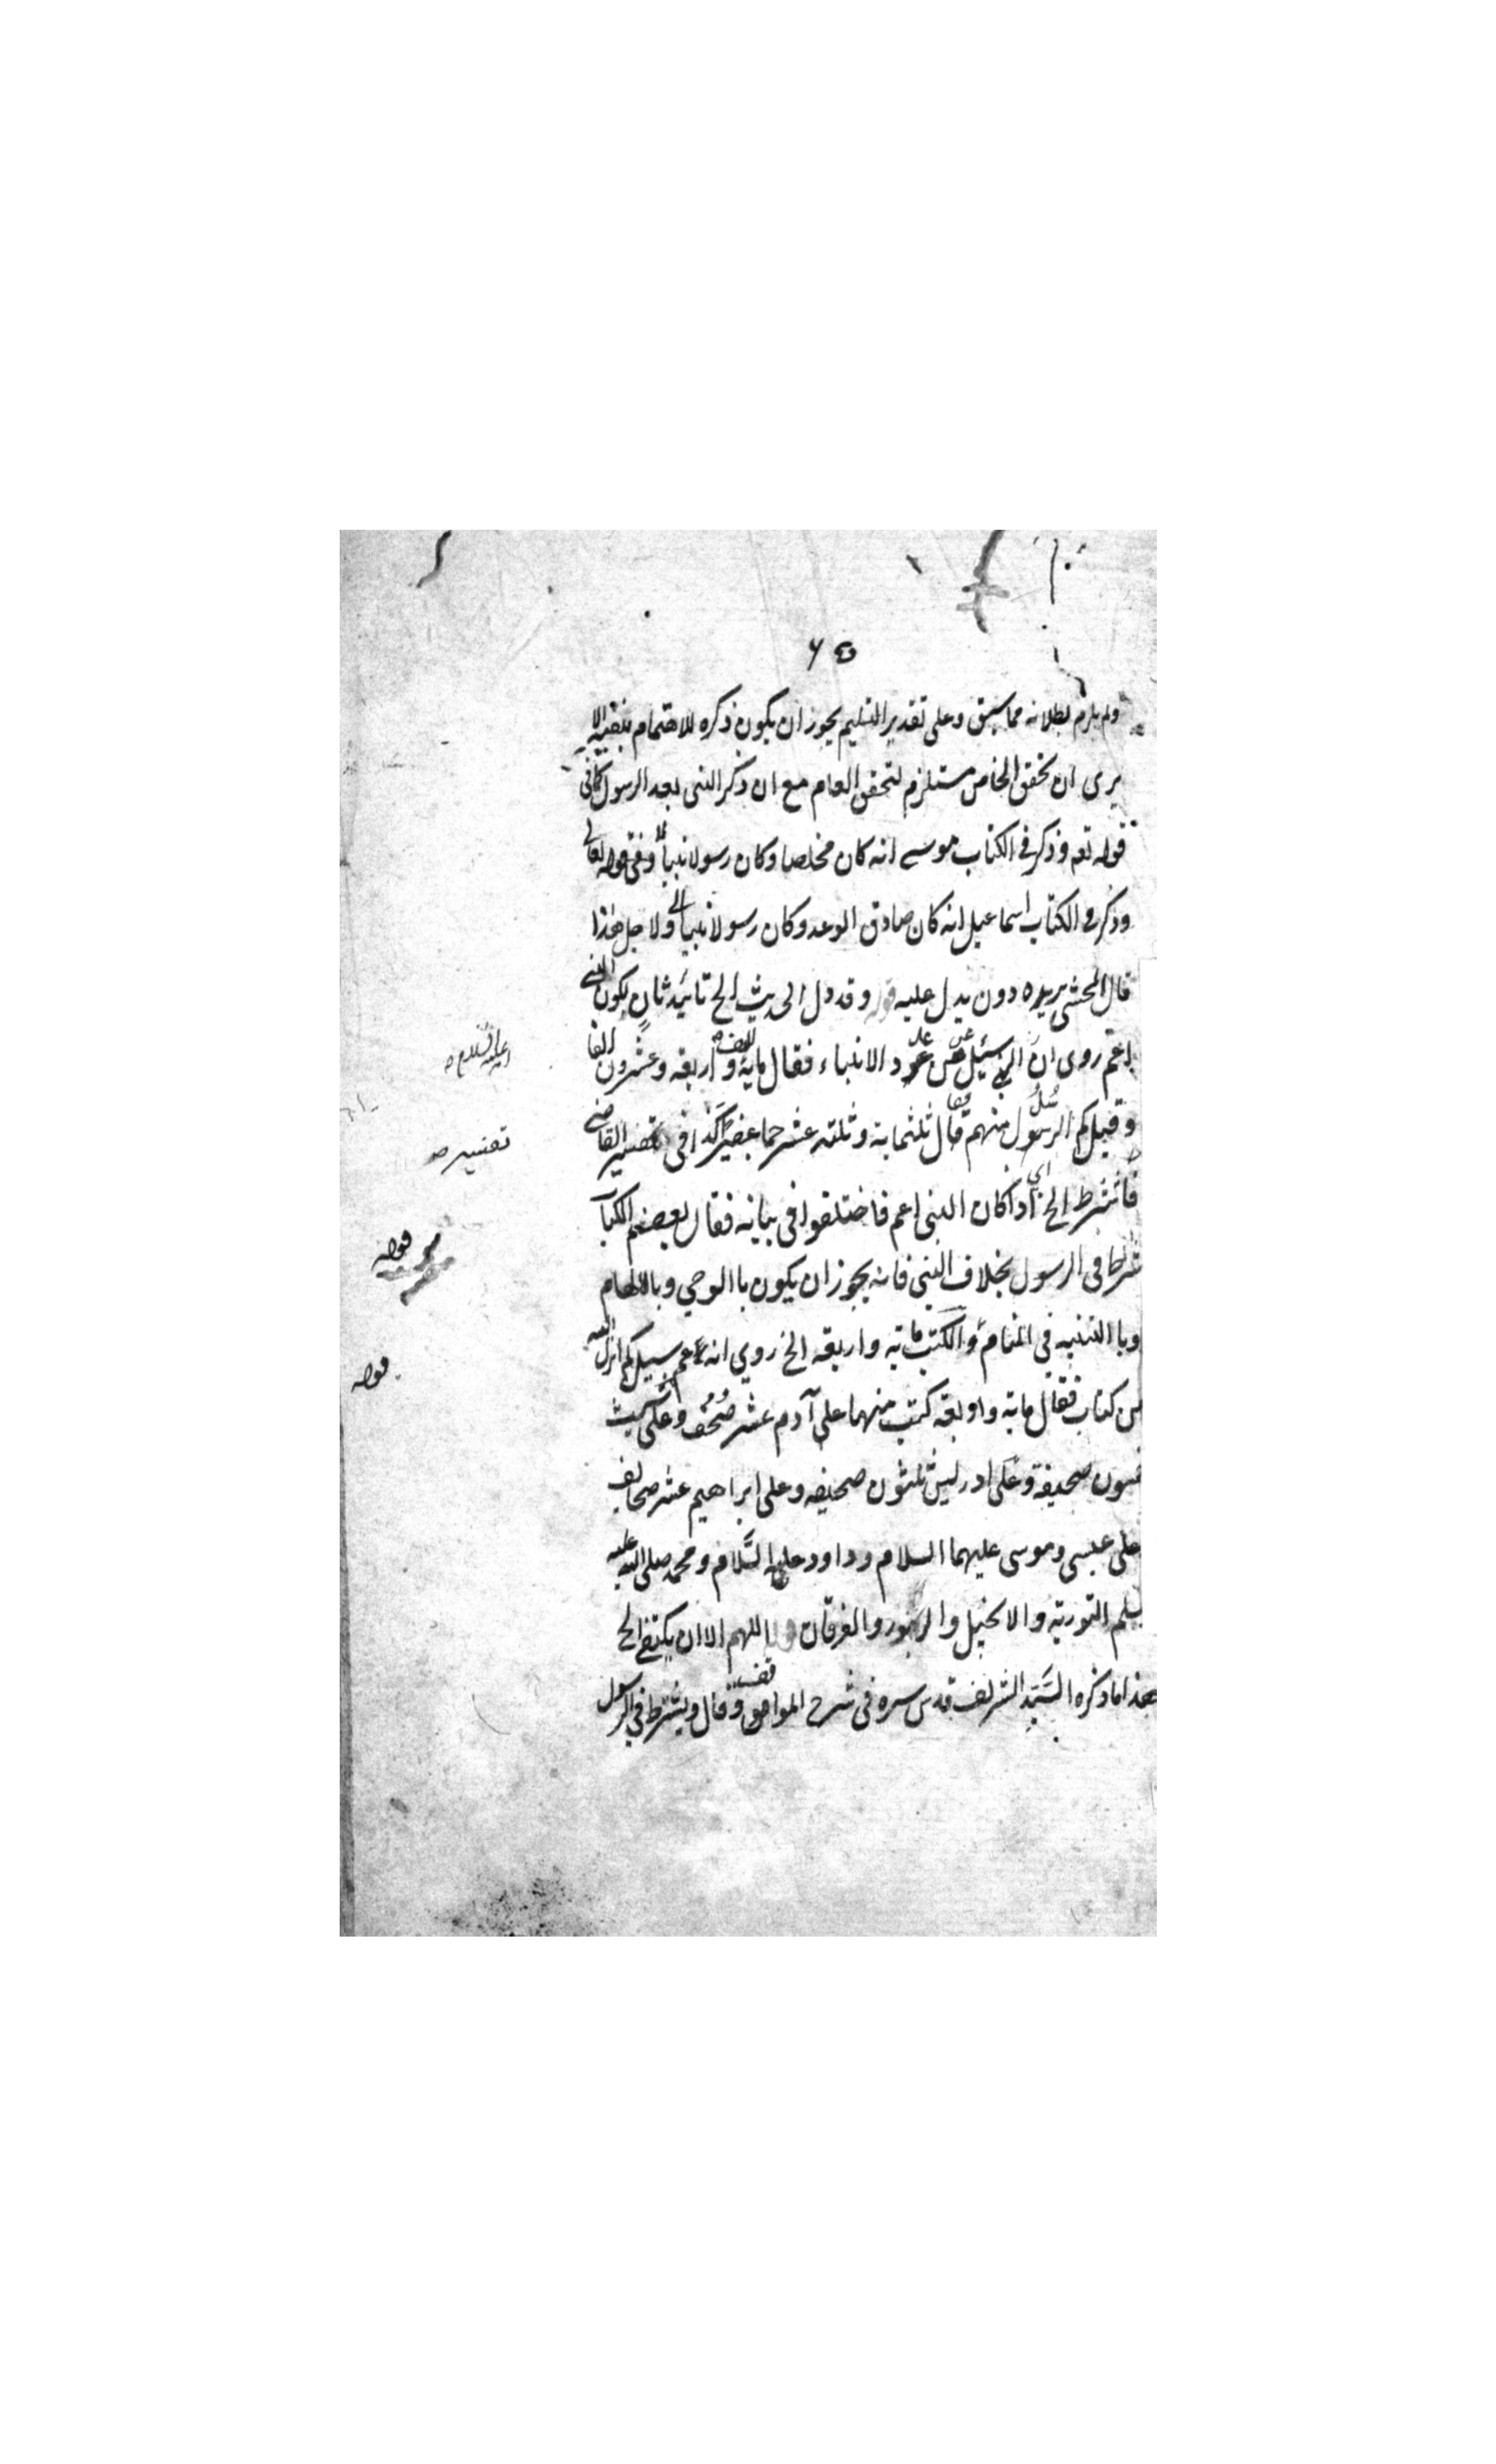 ٦٥
ولم يلزم بطلانه مما سبق وعلى تقدير التسليم يجوز ان يكون ذكره للاهتمام بنفيه الا
يرى ان تحقق الخاص مستلزم لتحقق العام مع ان ذكر النبى بعد الرسول كما فى
قوله تعم وذكر فى الكتاب موسى انه كان مخلصا وكان رسولا نبيا وفى قوله تعالى
وذكر فى الكتاب اسماعيل انه كان صادق الوعد وكان رسولا نبيا ولاجل هذا
قال المحشى يريده دون يدل عليه قوله وقد دل الحديث الخ تائيد ثان بكون النبى
اعم روى ان النبى سئيل عن عدد الانبياء فقال ماية واربعة وعشرون الفا
وقيل كم الرسل منهم فقال ثلثماية وثلثه عشر جما غفيرا كذا فى تفسير القاضى
فاشترط الخ اى اذا كان النبى اعم فاختلفوا فى بيانه فقال بعضهم الكتاب
شرط فى الرسول بخلاف النبى فانه يجوز ان يكون باالوحي وبالالهام
وباالتنبيه فى المنام والكتب ماية واربعة الخ روي انه عم سيل كم انزل الله
من كتاب فقال ماية واربعة كتب منهما على آدم عشر صُحُف وعلى شيث
خمسون صحيفة وعلى ادريس ثلثون صحيفه وعلى ابراهيم عشر صحايف
على عيسى وموسى عليهما السلام وداود عليه السَّلام ومحمد صلى الله عليه
وسلم التورية والانجيل والزبور والفرقان قوله اللهم الا ان يكتفى الخ
هذا ما ذكره السَّيّد الشريف قدس سره فى شرح المواقف وقال ويشترط فى الرسول
عليه السلام
تفسير صه
قوله
قوله